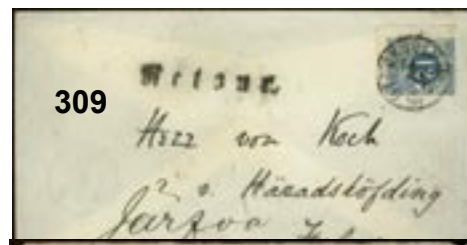 Retour
309
Herr von Koch
v. Häradshöfding
Järfva